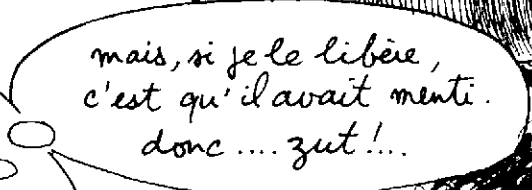 mais, si je le libère,
c'est qu'il avait menti.
donc .... zut !...